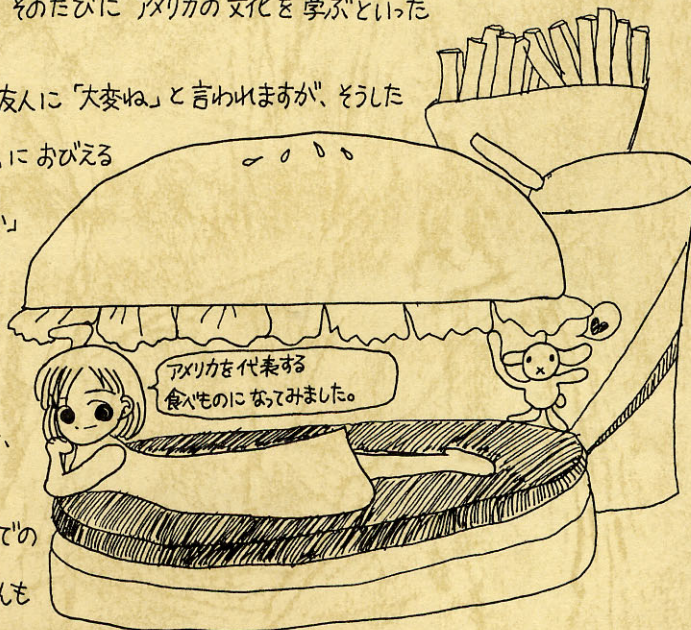 そのたびに アメリカの文化を学ぶといった
友人に「大変ね」と言われますが、そうした
におびえる
」
アメリカを代表する
食べものになってみました。
、
での
んも